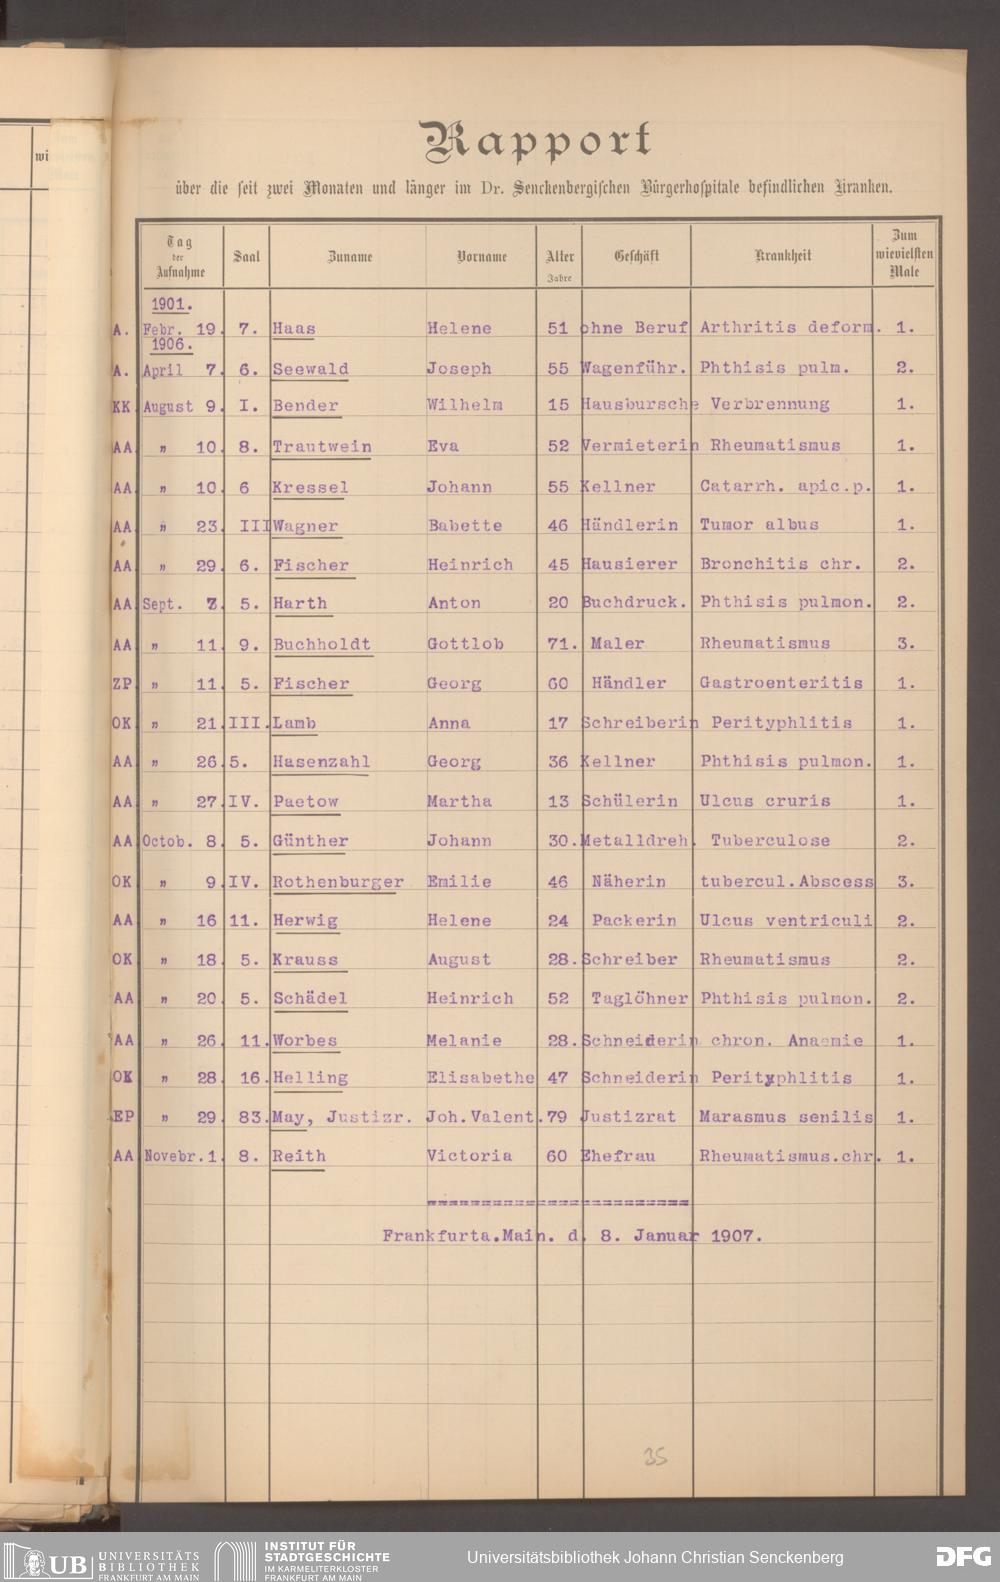 wi
Rapport
über die seit zwei Monaten und länger im Dr. Senckenbergischen Bürgerhospitale befindlichen Kranken.
Tag der Aufnahme Saal Zuname Vorname Alter Jahre Geschäft Krankheit Zum wievielsten Male
1901.
A. Febr. 19. 7. Haas Helene 51 ohne Beruf Arthritis deform. 1.
1906.
A. April 7. 6. Seewald Joseph 55 Wagenführ. Phthisis pulm. 2.
KK August 9. I. Bender Wilhelm 15 Hausbursche Verbrennung 1.
AA " 10. 8. Trautwein Eva 52 Vermieterin Rheumatismus 1.
AA " 10. 6 Kressel Johann 55 Kellner Catarrh. apic.p. 1.
AA " 23. III Wagner Babette 46 Händlerin Tumor albus 1.
AA " 29. 6. Fischer Heinrich 45 Hausierer Bronchitis chr. 2.
AA Sept. 3. 5. Harth Anton 20 Buchdruck. Phthisis pulmon. 2.
AA " 11. 9. Buchholdt Gottlob 71. Maler Rheumatismus 3.
ZP " 11. 5. Fischer Georg 60 Händler Gastroenteritis 1.
OK " 21. III. Lamb Anna 17 Schreiberin Perityphlitis 1.
AA " 26. 5. Hasenzahl Georg 36 Kellner Phthisis pulmon. 1.
AA " 27. IV. Paetow Martha 13 Schülerin Ulcus cruris 1.
AA Octob. 8. 5. Günther Johann 30. Metalldreh. Tuberculose 2.
OK " 9. IV. Rothenburger Emilie 46 Näherin tubercul.Abscess 3.
AA " 16 11. Herwig Helene 24 Packerin Ulcus ventriculi 2.
OK " 18. 5. Krauss August 28. Schreiber Rheumatismus 2.
AA " 20. 5. Schädel Heinrich 52 Taglöhner Phthisis pulmon. 2.
AA " 26. 11. Worbes Melanie 28. Schneiderin chron. Anaemie 1.
OK " 28. 16. Helling Elisabethe 47 Schneiderin Perityphlitis 1.
EP " 29. 83. May, Justizr. Joh.Valent. 79 Justizrat Marasmus senilis 1.
AA Novebr.1. 8. Reith Victoria 60 Ehefrau Rheumatismus.chr. 1.
========================
Frankfurta.Main. d. 8. Januar 1907.
35
UB UNIVERSITÄTS BIBLIOTHEK FRANKFURT AM MAIN
INSTITUT FÜR STADTGESCHICHTE IM KARMELITERKLOSTER FRANKFURT AM MAIN
Universitätsbibliothek Johann Christian Senckenberg
DFG